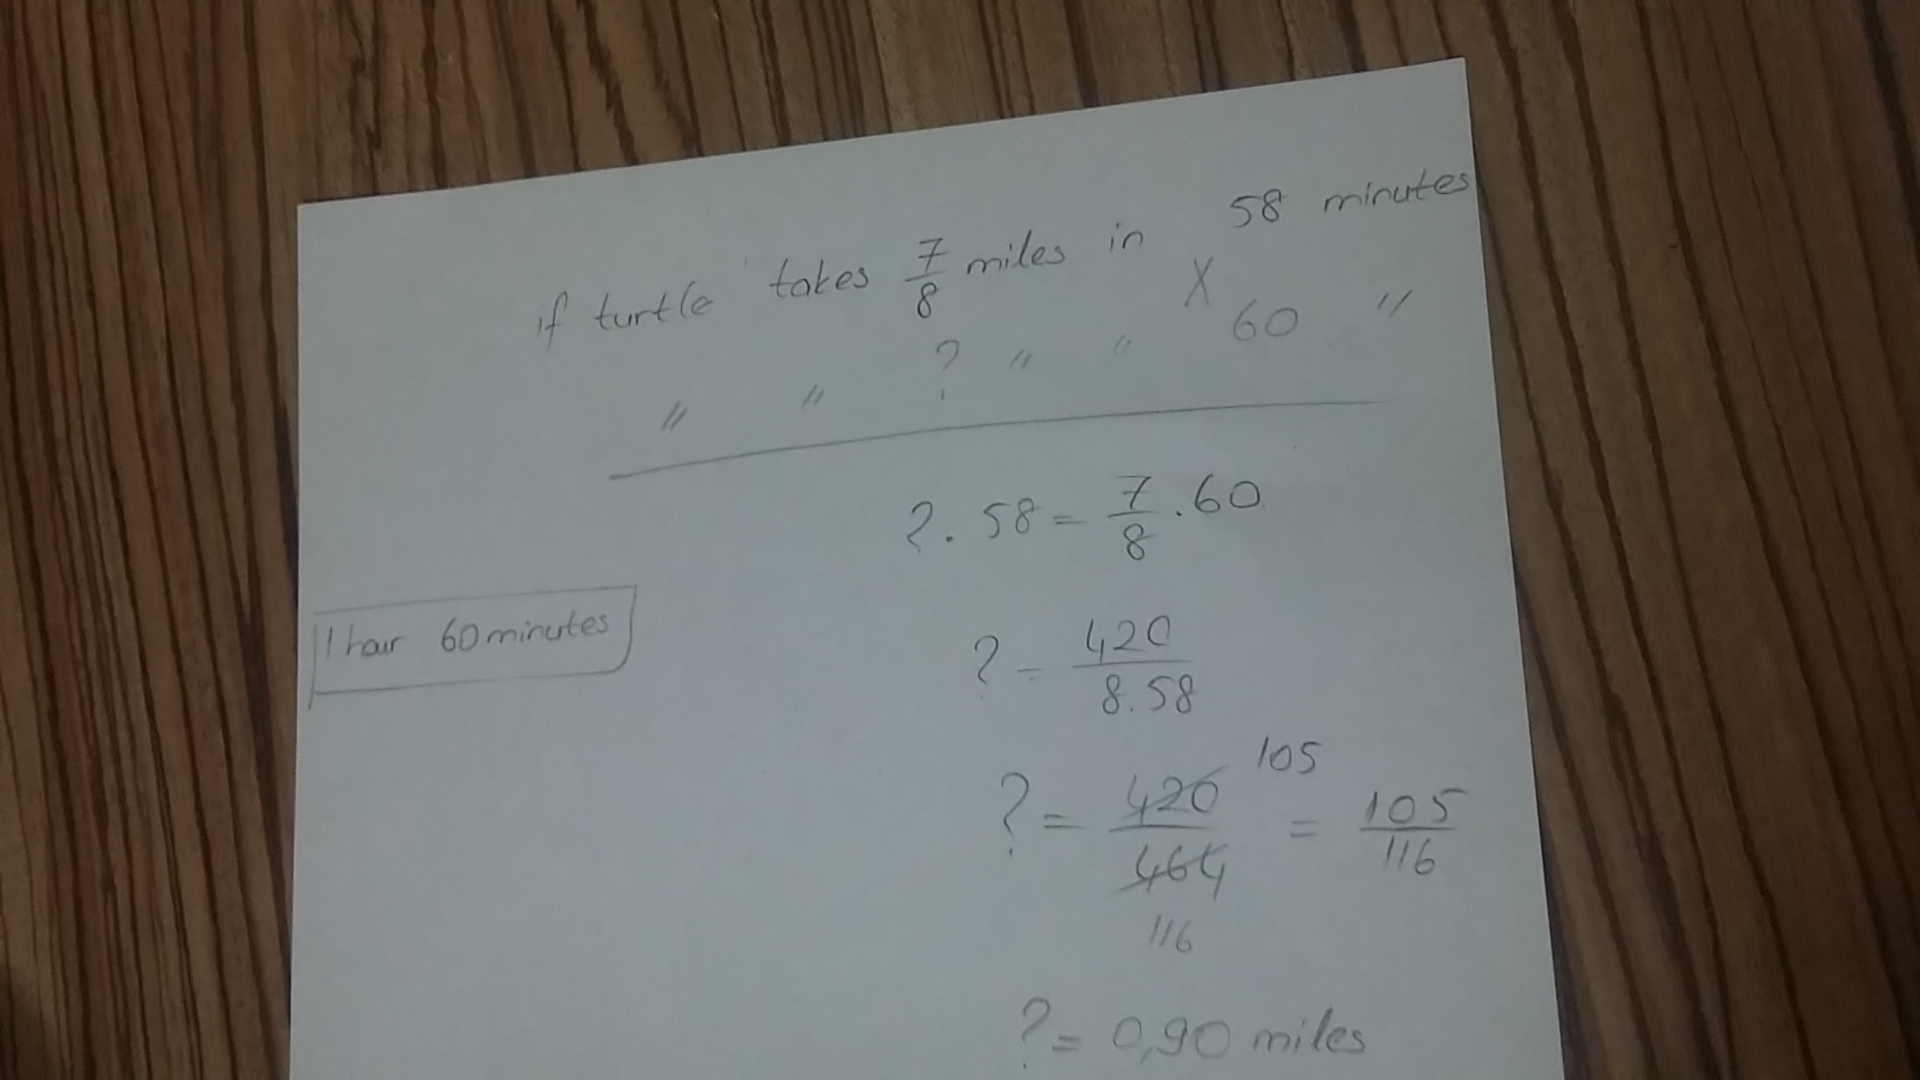 if turtle takes 7/8 miles in 58 minutes
" " ? " " X 60 "
? . 58 = 7/8 . 60
1 hour 60 minutes
? = 420/8.58
? = 420/464 105 = 105/116
116
? = 0,90 miles